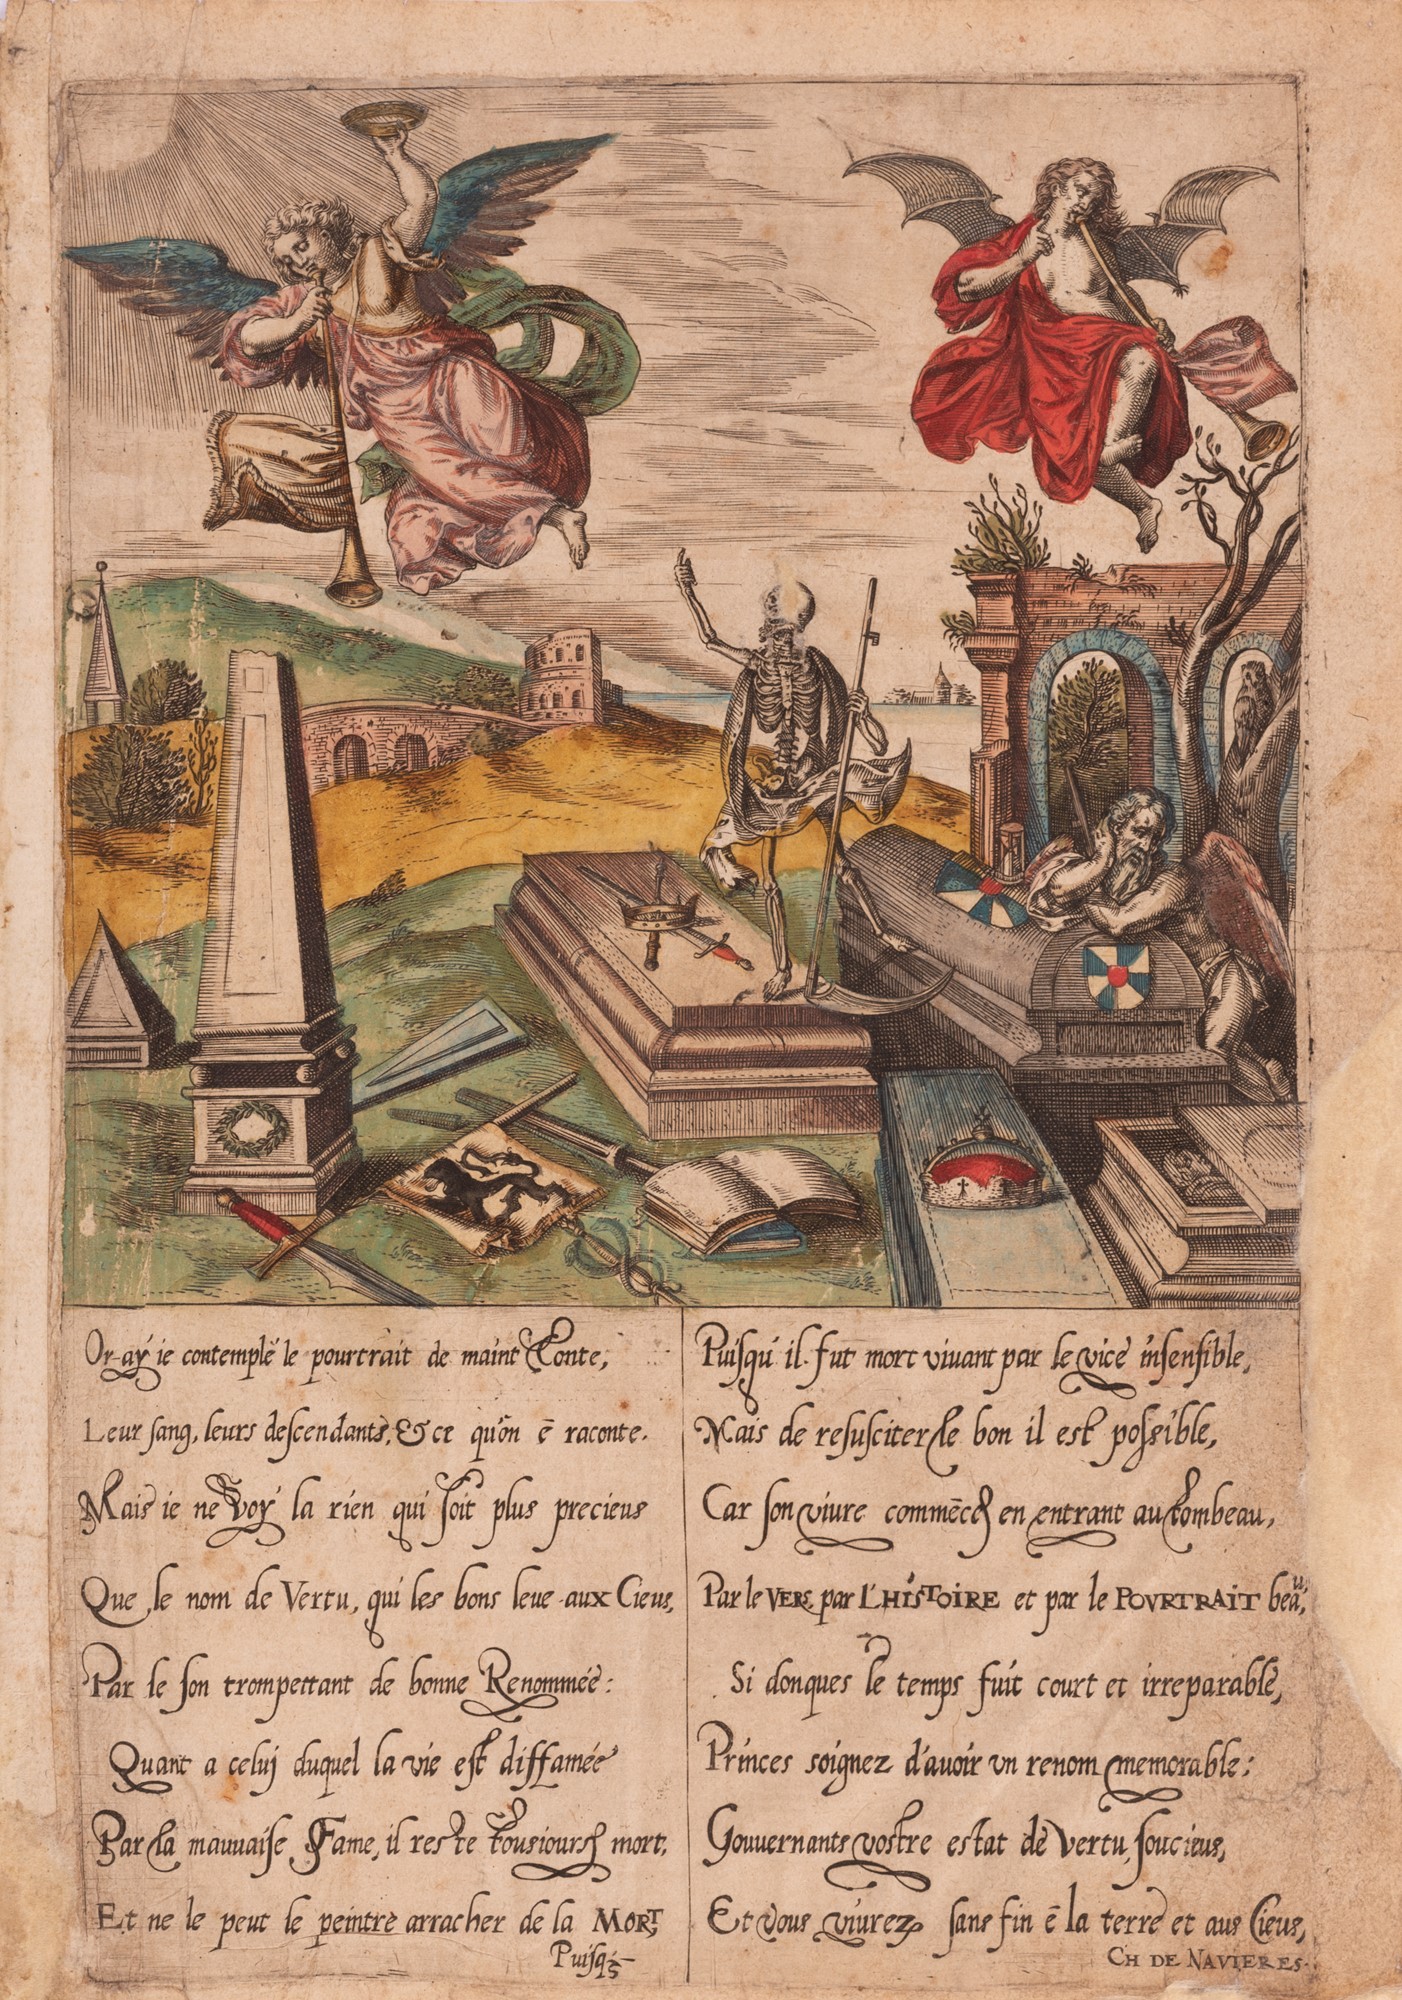 Or ay ie contemplé le pourtrait de maint Conte,
Leur sang, leurs descendants, & ce qu'on ē raconte.
Mais ie ne voy la rien qui soit plus precieus
Que le nom de Vertu, qui les bons leue aux Cieus,
Par le son trompettant de bonne Renommée:
Quant a celuj duquel la vie est diffamée
Par la mauuaise Fame, il reste tousiours mort,
Et ne le peut le peintre arracher de la MORT,
Puisq'
Puisqu'il fut mort viuant par le vice insensible,
Mais de resusciter le bon il est possible,
Car son viure commēce en entrant au tombeau,
Par le VERS, par L'HISTOIRE et par le POVRTRAIT beau,
Si donques le temps fuit court et irreparable,
Princes soignez d'auoir vn renom memorable:
Gouuernants vostre estat de Vertu soucieus,
Et vous viurez sans fin ē la terre et aus Cieus,
CH DE NAVIERES.